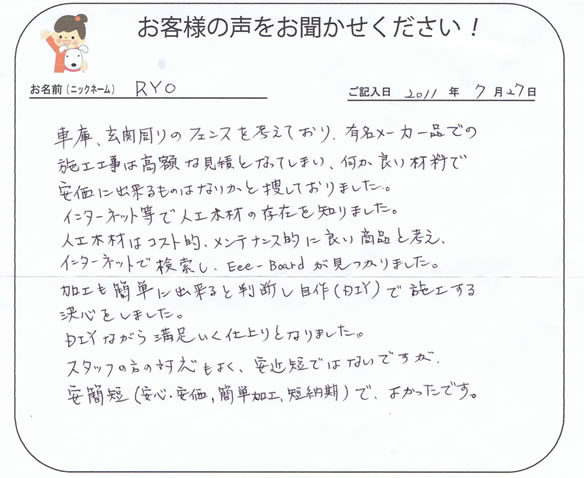 お客様の声をお聞かせください！
お名前（ニックネーム） RYO ご記入日 2011 年 7 月 27 日
車庫、玄関周りのフェンスを考えており、有名メーカー品での
施工工事は高額な見積となってしまい、何か良い材料で
安価に出来るものはないかと捜しておりました。
インターネット等で人工木材の存在を知りました。
人工木材はコスト的、メンテナンス的に良い商品と考え、
インターネットで検索し、Eee-Boardが見つかりました。
加工も簡単に出来ると判断し自作(DIY)で施工する
決心をしました。
DIYながら満足いく仕上りとなりました。
スタッフの方の対応もよく、安近短ではないですが、
安簡短(安心・安価，簡単加工，短納期)で、よかったです。